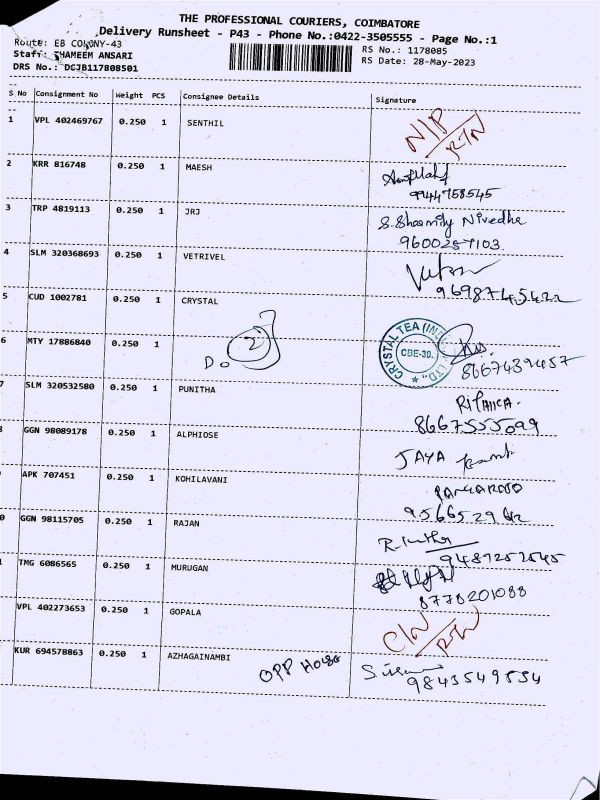 THE PROFESSIONAL COURIERS, COIMBATORE
Delivery Runsheet - P43 - Phone No.:0422-3505555 - Page No.:1
Route: EB COLONY-43
RS No.: 1178085
Staff: THAMEEM ANSARI
RS Date: 28-May-2023
DRS No.: DCJB117808501
S No Consignment No Weight PCS Consignee Details Signature
1 VPL 402469767 0.250 1 SENTHIL N/P
RTN
2 KRR 816748 0.250 1 MAESH
9944758545
3 TRP 4819113 0.250 1 JRJ S. Sharmily Nivedha
9600257103
4 SLM 320368693 0.250 1 VETRIVEL
9698745422
5 CUD 1002781 0.250 1 CRYSTAL
CRYSTAL TEA LTD.
CBE-30.
6 MTY 17886840 0.250 1 D. 2
8667439457
7 SLM 320532580 0.250 1 PUNITHA
8667555099
8 GGN 98089178 0.250 1 ALPHIOSE JAYA
APK 707451 0.250 1 KOHILAVANI
0 GGN 98115705 0.250 1 RAJAN
9487252545
TMG 6086565 0.250 1 MURUGAN
8778201088
VPL 402273653 0.250 1 GOPALA C/N
RTN
KUR 694578863 0.250 1 AZHAGAINAMBI OPP House
9843549534